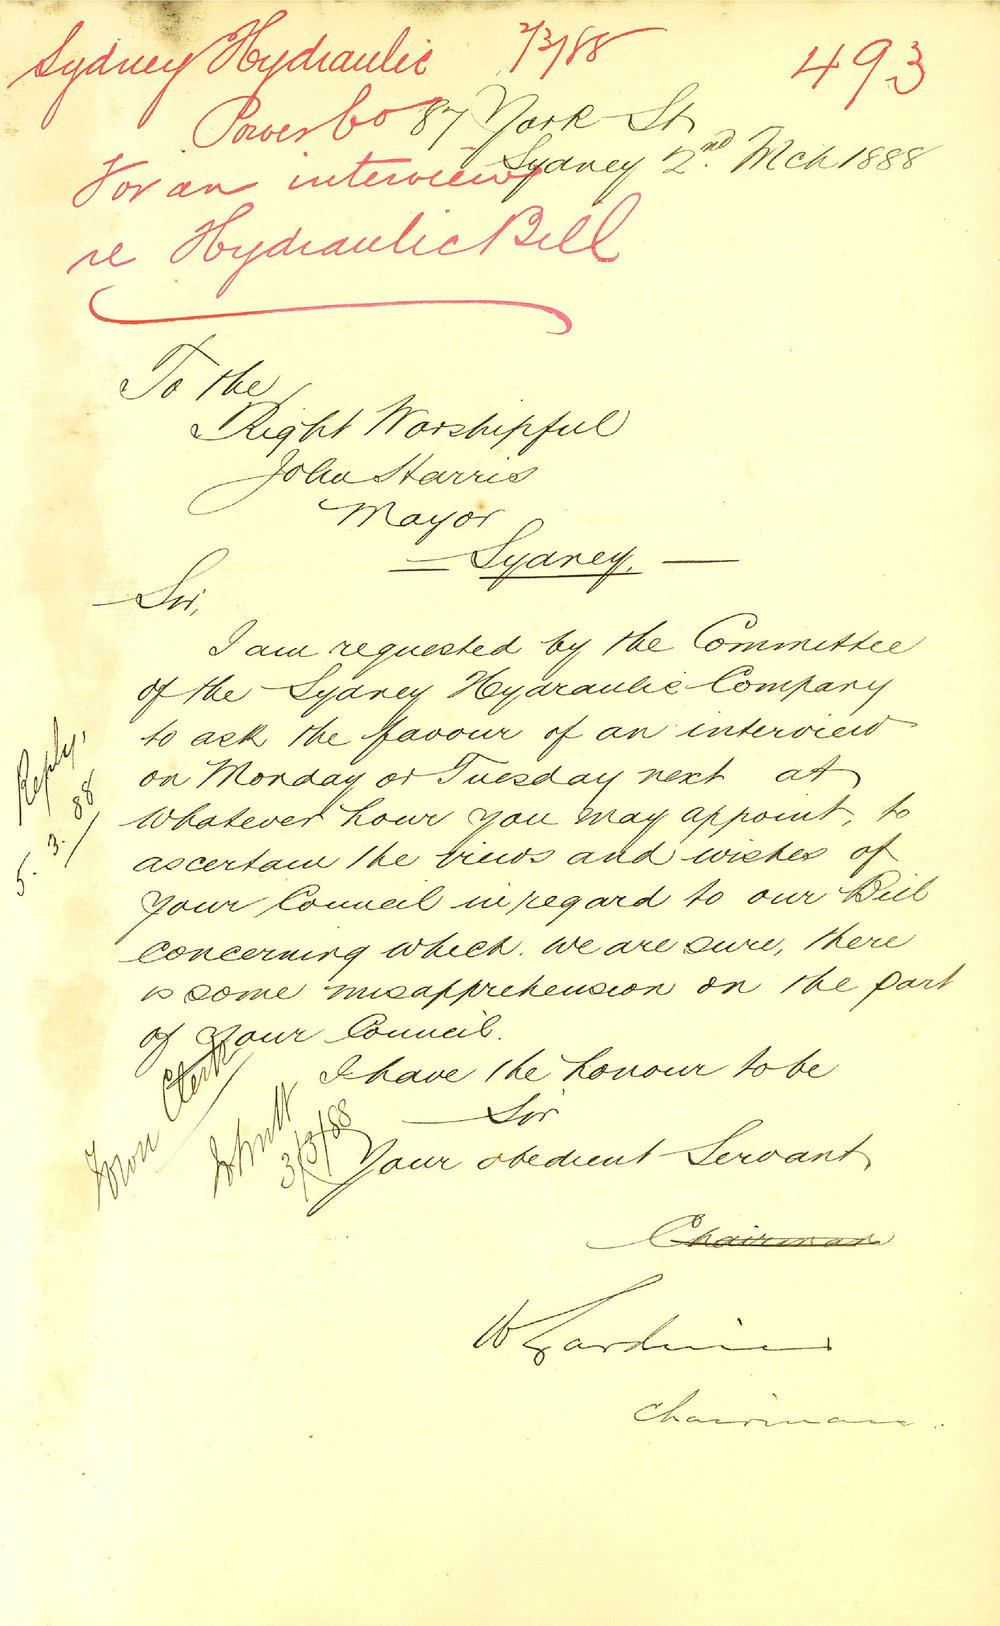 Sydney Hydraulic 2/3/88 493
Power Co 87 York St
For an interview Sydney 2nd. Mch 1888
re Hydraulic Bill
To the
Right Worshipful
John Harris
Mayor
Sydney.
Sir,
I am requested by the Committee
of the Sydney Hydraulic Company
to ask the favour of an interview
on Monday or Tuesday next at
whatever hour you may appoint, to
ascertain the views and wishes of
your Council in regard to our Bill
concerning which. we are sure, there
is some misapprehension on the part
of your Council.
I have the honour to be
Sir
Your obedient Servant
Chairman
W Gardiner
Chairman.
Reply,
5.3.88
Town Clerk
3/3/88